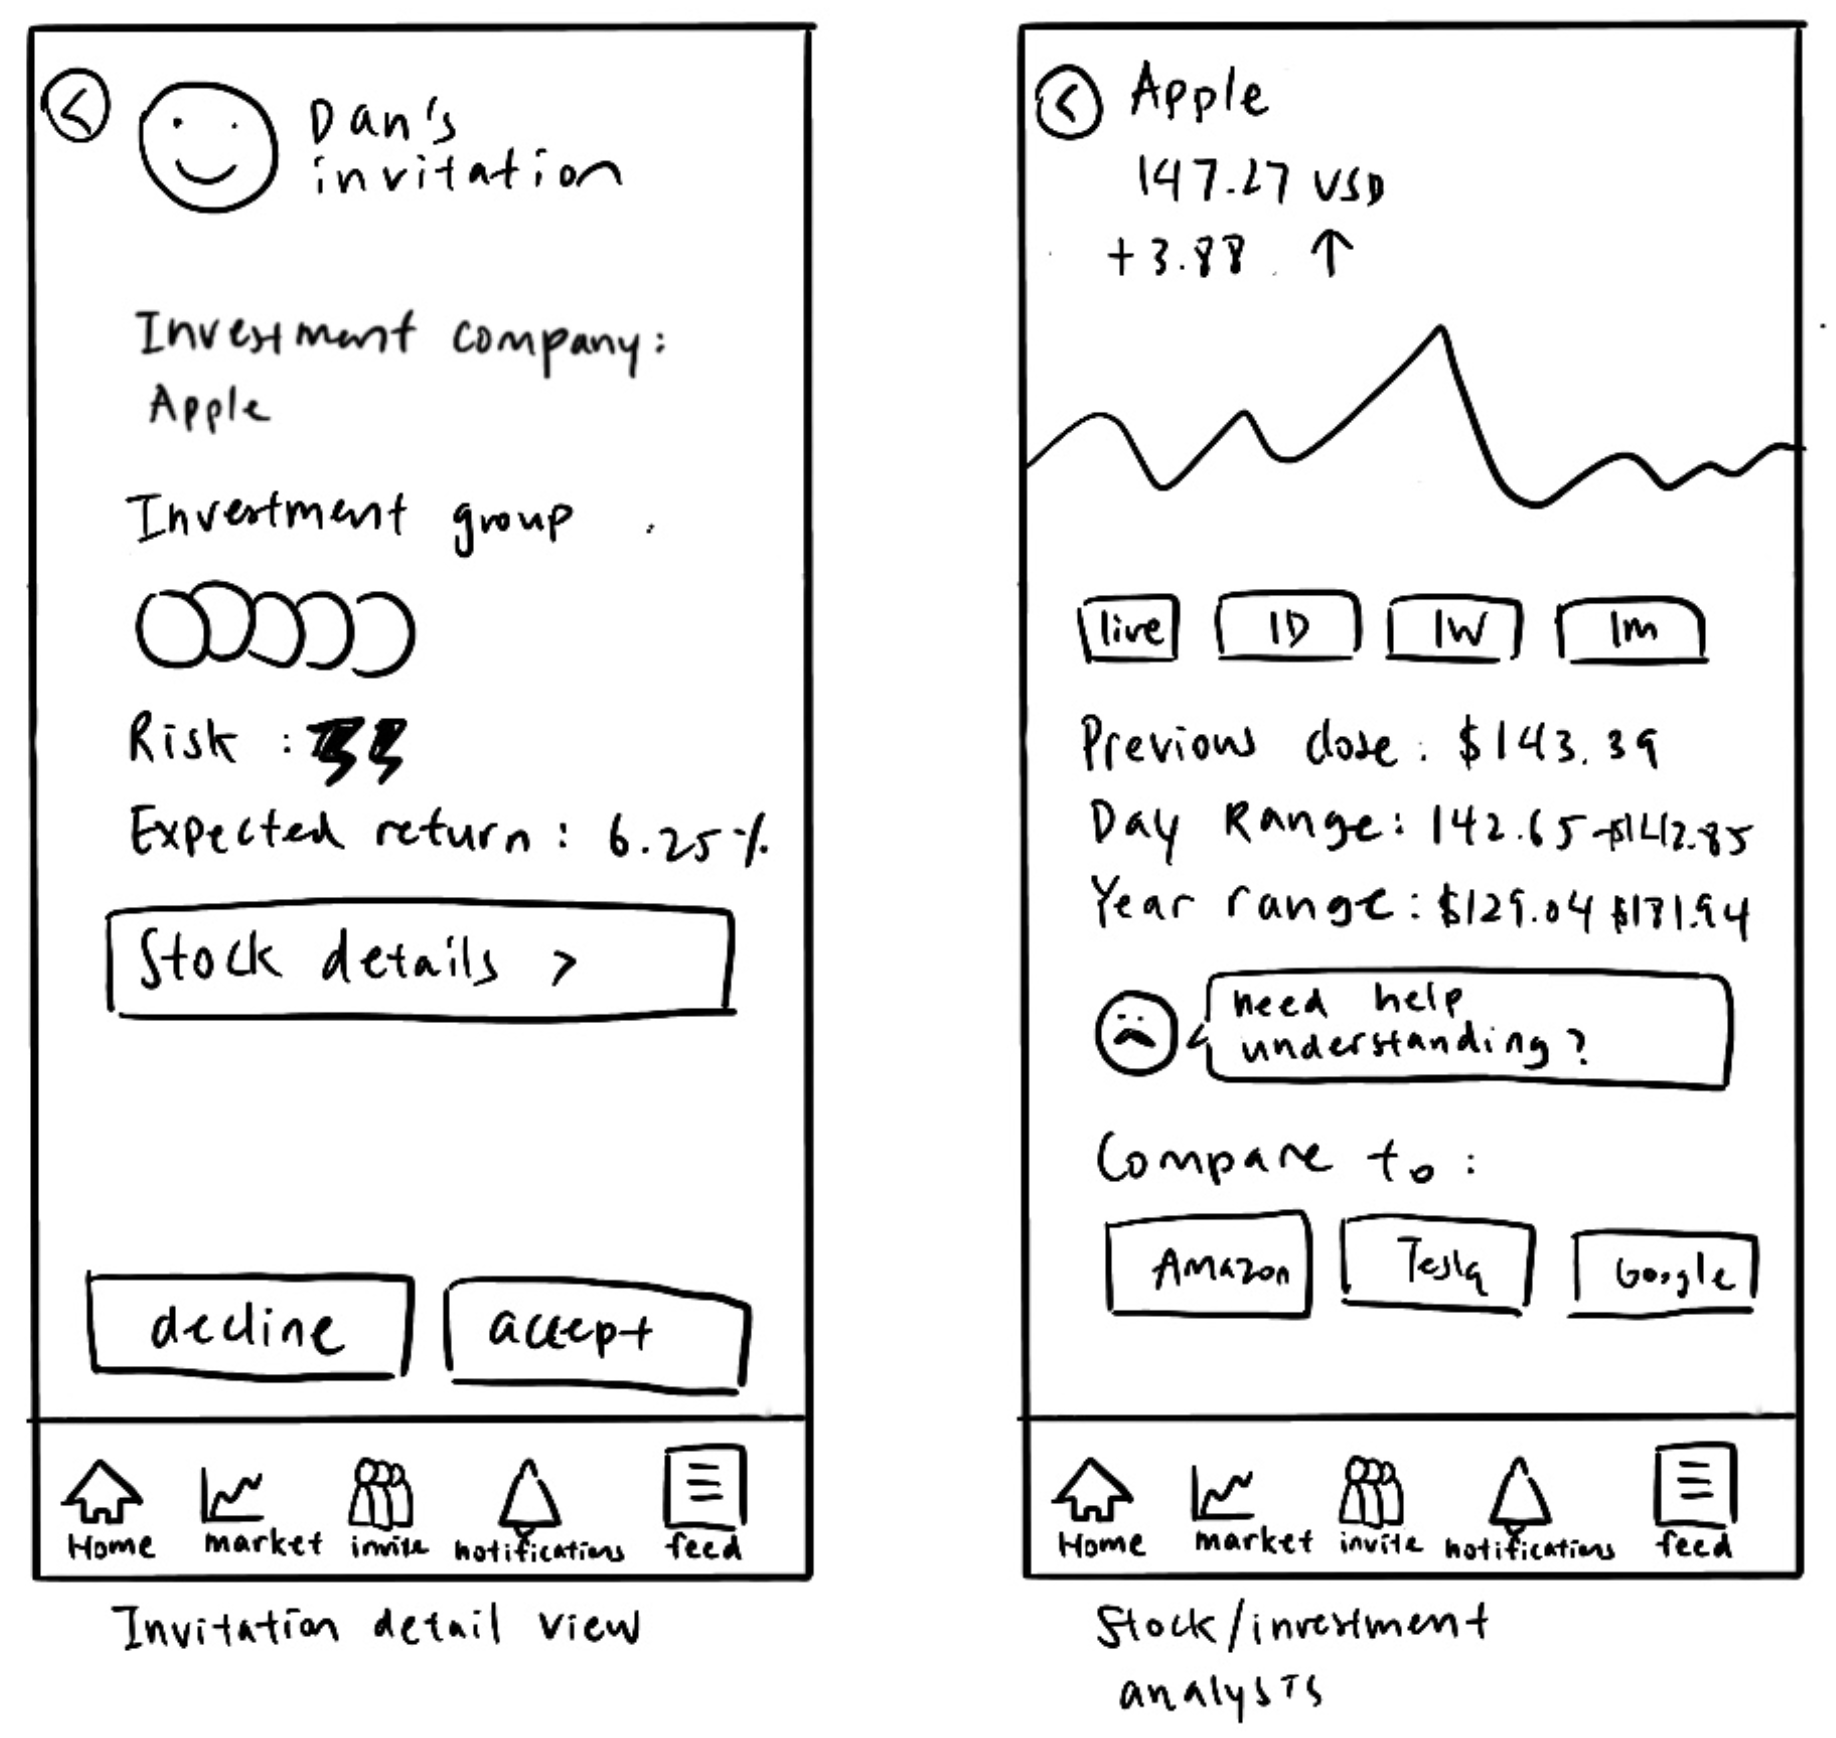 Dan's
invitation
Investment company:
Apple
Investment group
Risk :
Expected return : 6.25%
Stock details >
decline
accept
Home
market
invite
notifications
feed
Invitation detail view
Apple
147.27 USD
+3.88 ↑
live
1D
1W
1m
Previous close : $143.39
Day Range: 142.65-$142.85
Year range: $129.04 $181.94
need help
understanding?
Compare to :
Amazon
Tesla
Google
Home
market
invite
notifications
feed
Stock/investment
analysis